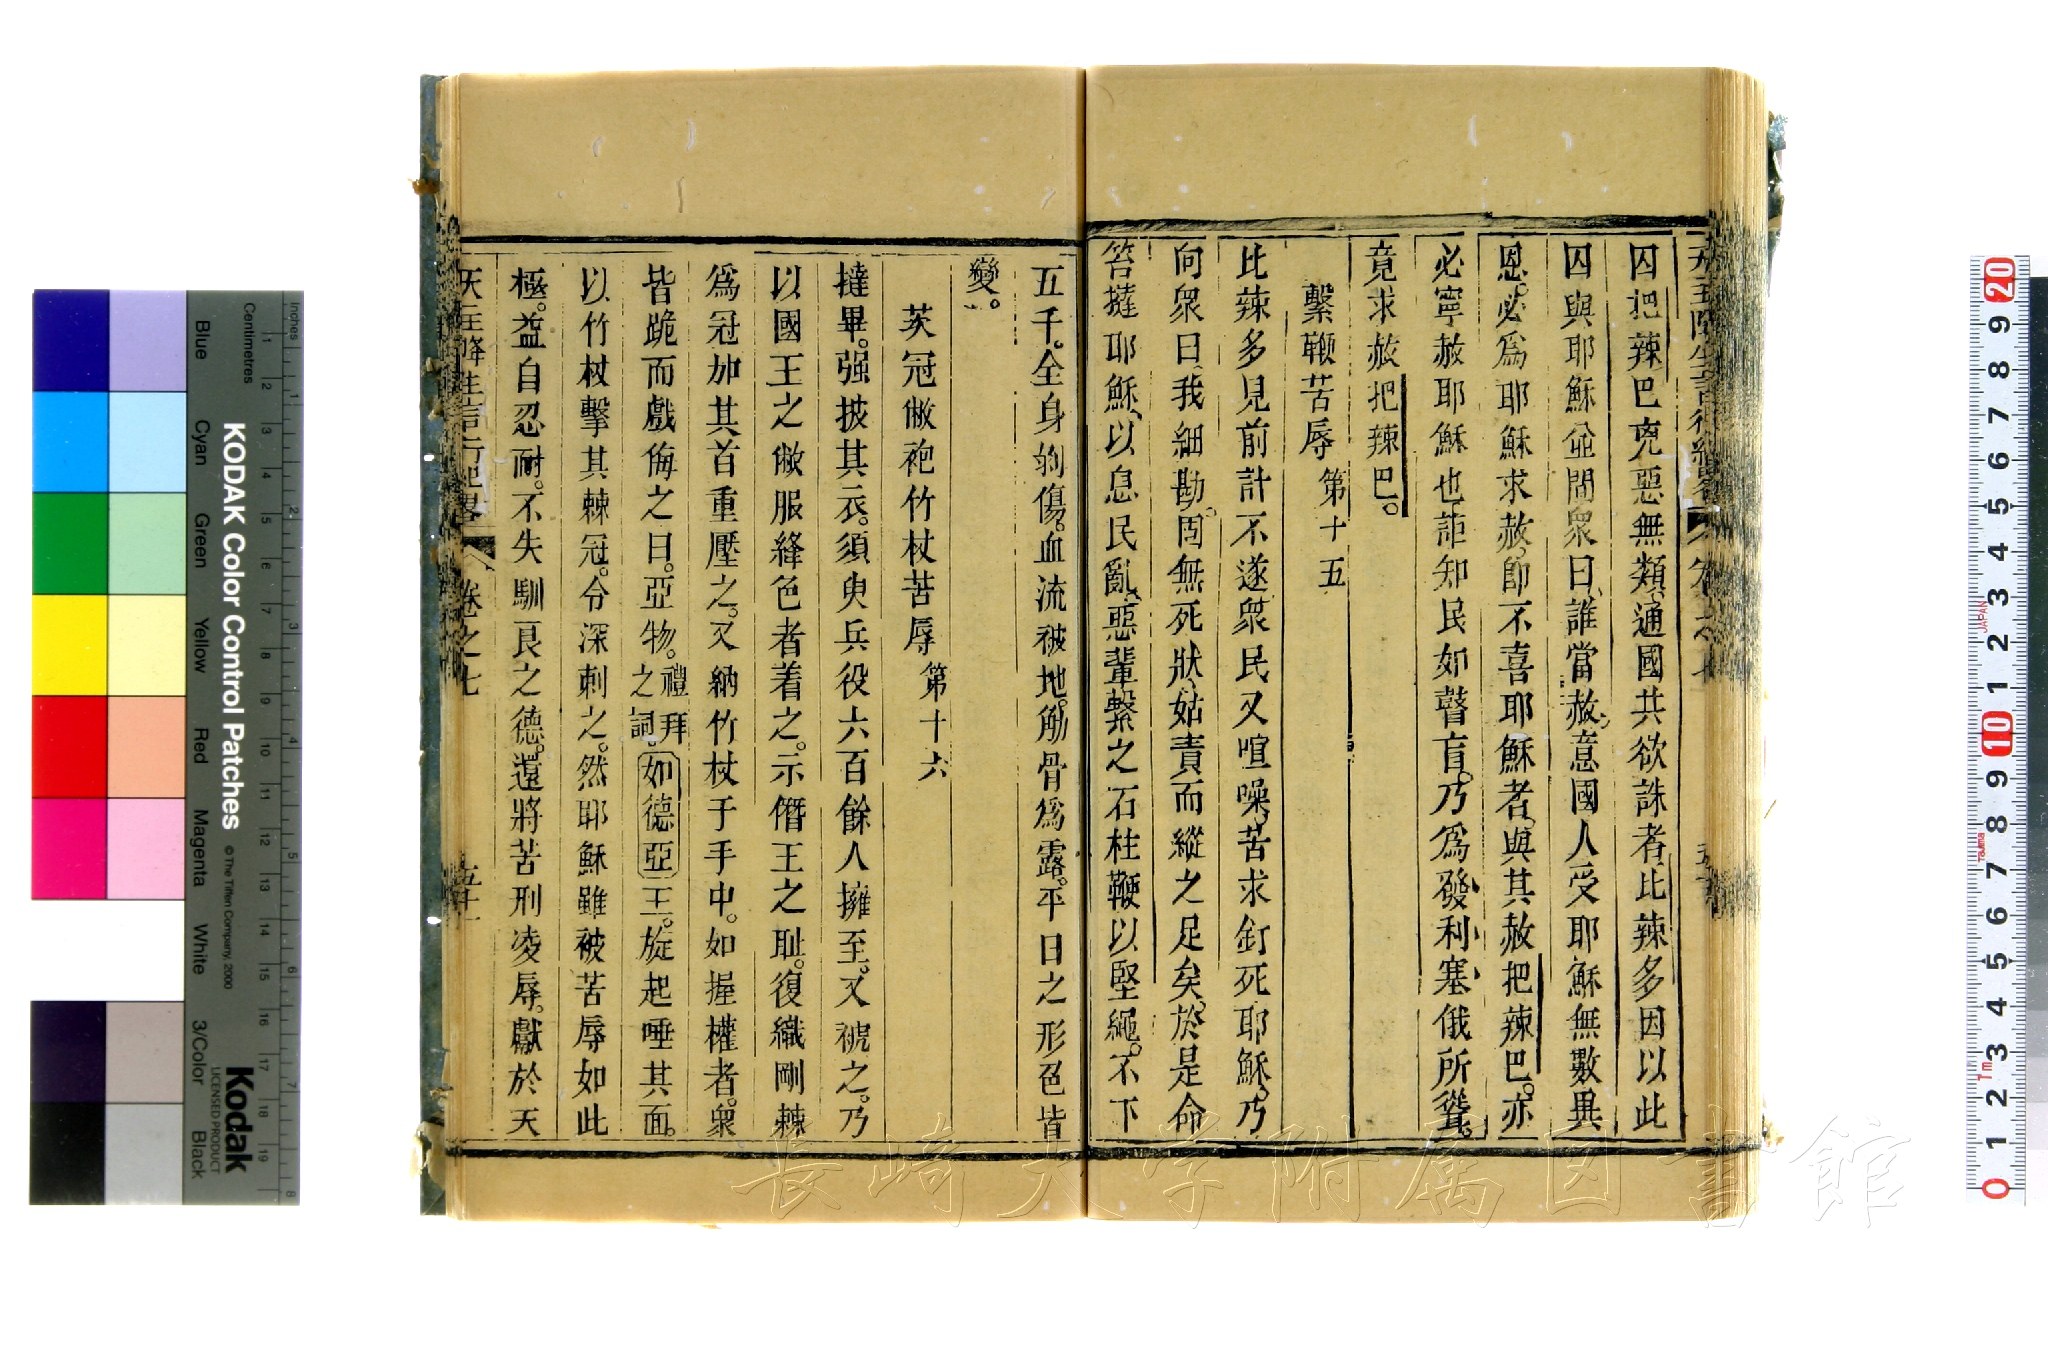 囚把辣巴兇惡無類通國共欲誅者比辣多因以此
囚與耶穌並問衆曰誰當赦意國人受耶穌無數異
恩必爲耶穌求赦卽不喜耶穌者與其赦把辣巴亦
必寧赦耶穌也詎知民如瞽盲乃爲發利塞俄所聳
竟求赦把辣巴
繫鞭苦辱 第十五
比辣多見前計不遂衆民又喧噪苦求釘死耶穌乃
向衆曰我細勘固無死狀姑責而縱之足矣於是命
笞撻耶穌以息民亂惡輩繫之石柱鞭以堅繩不下
五千全身剝傷血流被地觔骨爲露平日之形色皆
變
茨冠敝袍竹杖苦辱 第十六
撻畢强披其衣須臾兵役六百餘人擁至又褫之乃
以國王之敝服絳色者着之示僭王之耻復織剛棘
爲冠加其首重壓之又納竹杖于手中如握權者衆
皆跪而戲侮之曰亞物禮拜之詞如德亞王旋起唾其面
以竹杖擊其棘冠令深刺之然耶穌雖被苦辱如此
極益自忍耐不失馴良之德還將苦刑凌辱獻於天
天主降生言行紀畧 卷之七 五十一
KODAK Color Control Patches
© The Tiffen Company, 2000
Kodak
LICENSED PRODUCT
Inches
Centimetres
Blue Cyan Green Yellow Red Magenta White 3/Color Black
長崎大学附属図書館
JAPAN
Tajima